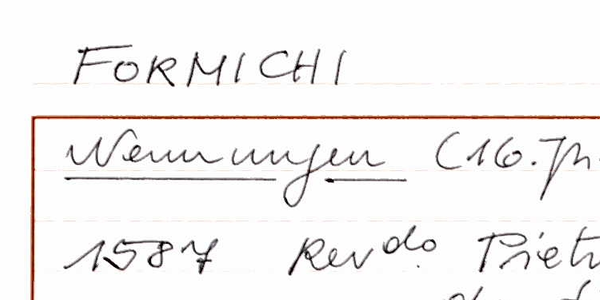 FORMICHI
Nennungen (16. Jh.
1587 Rev.do Pietr